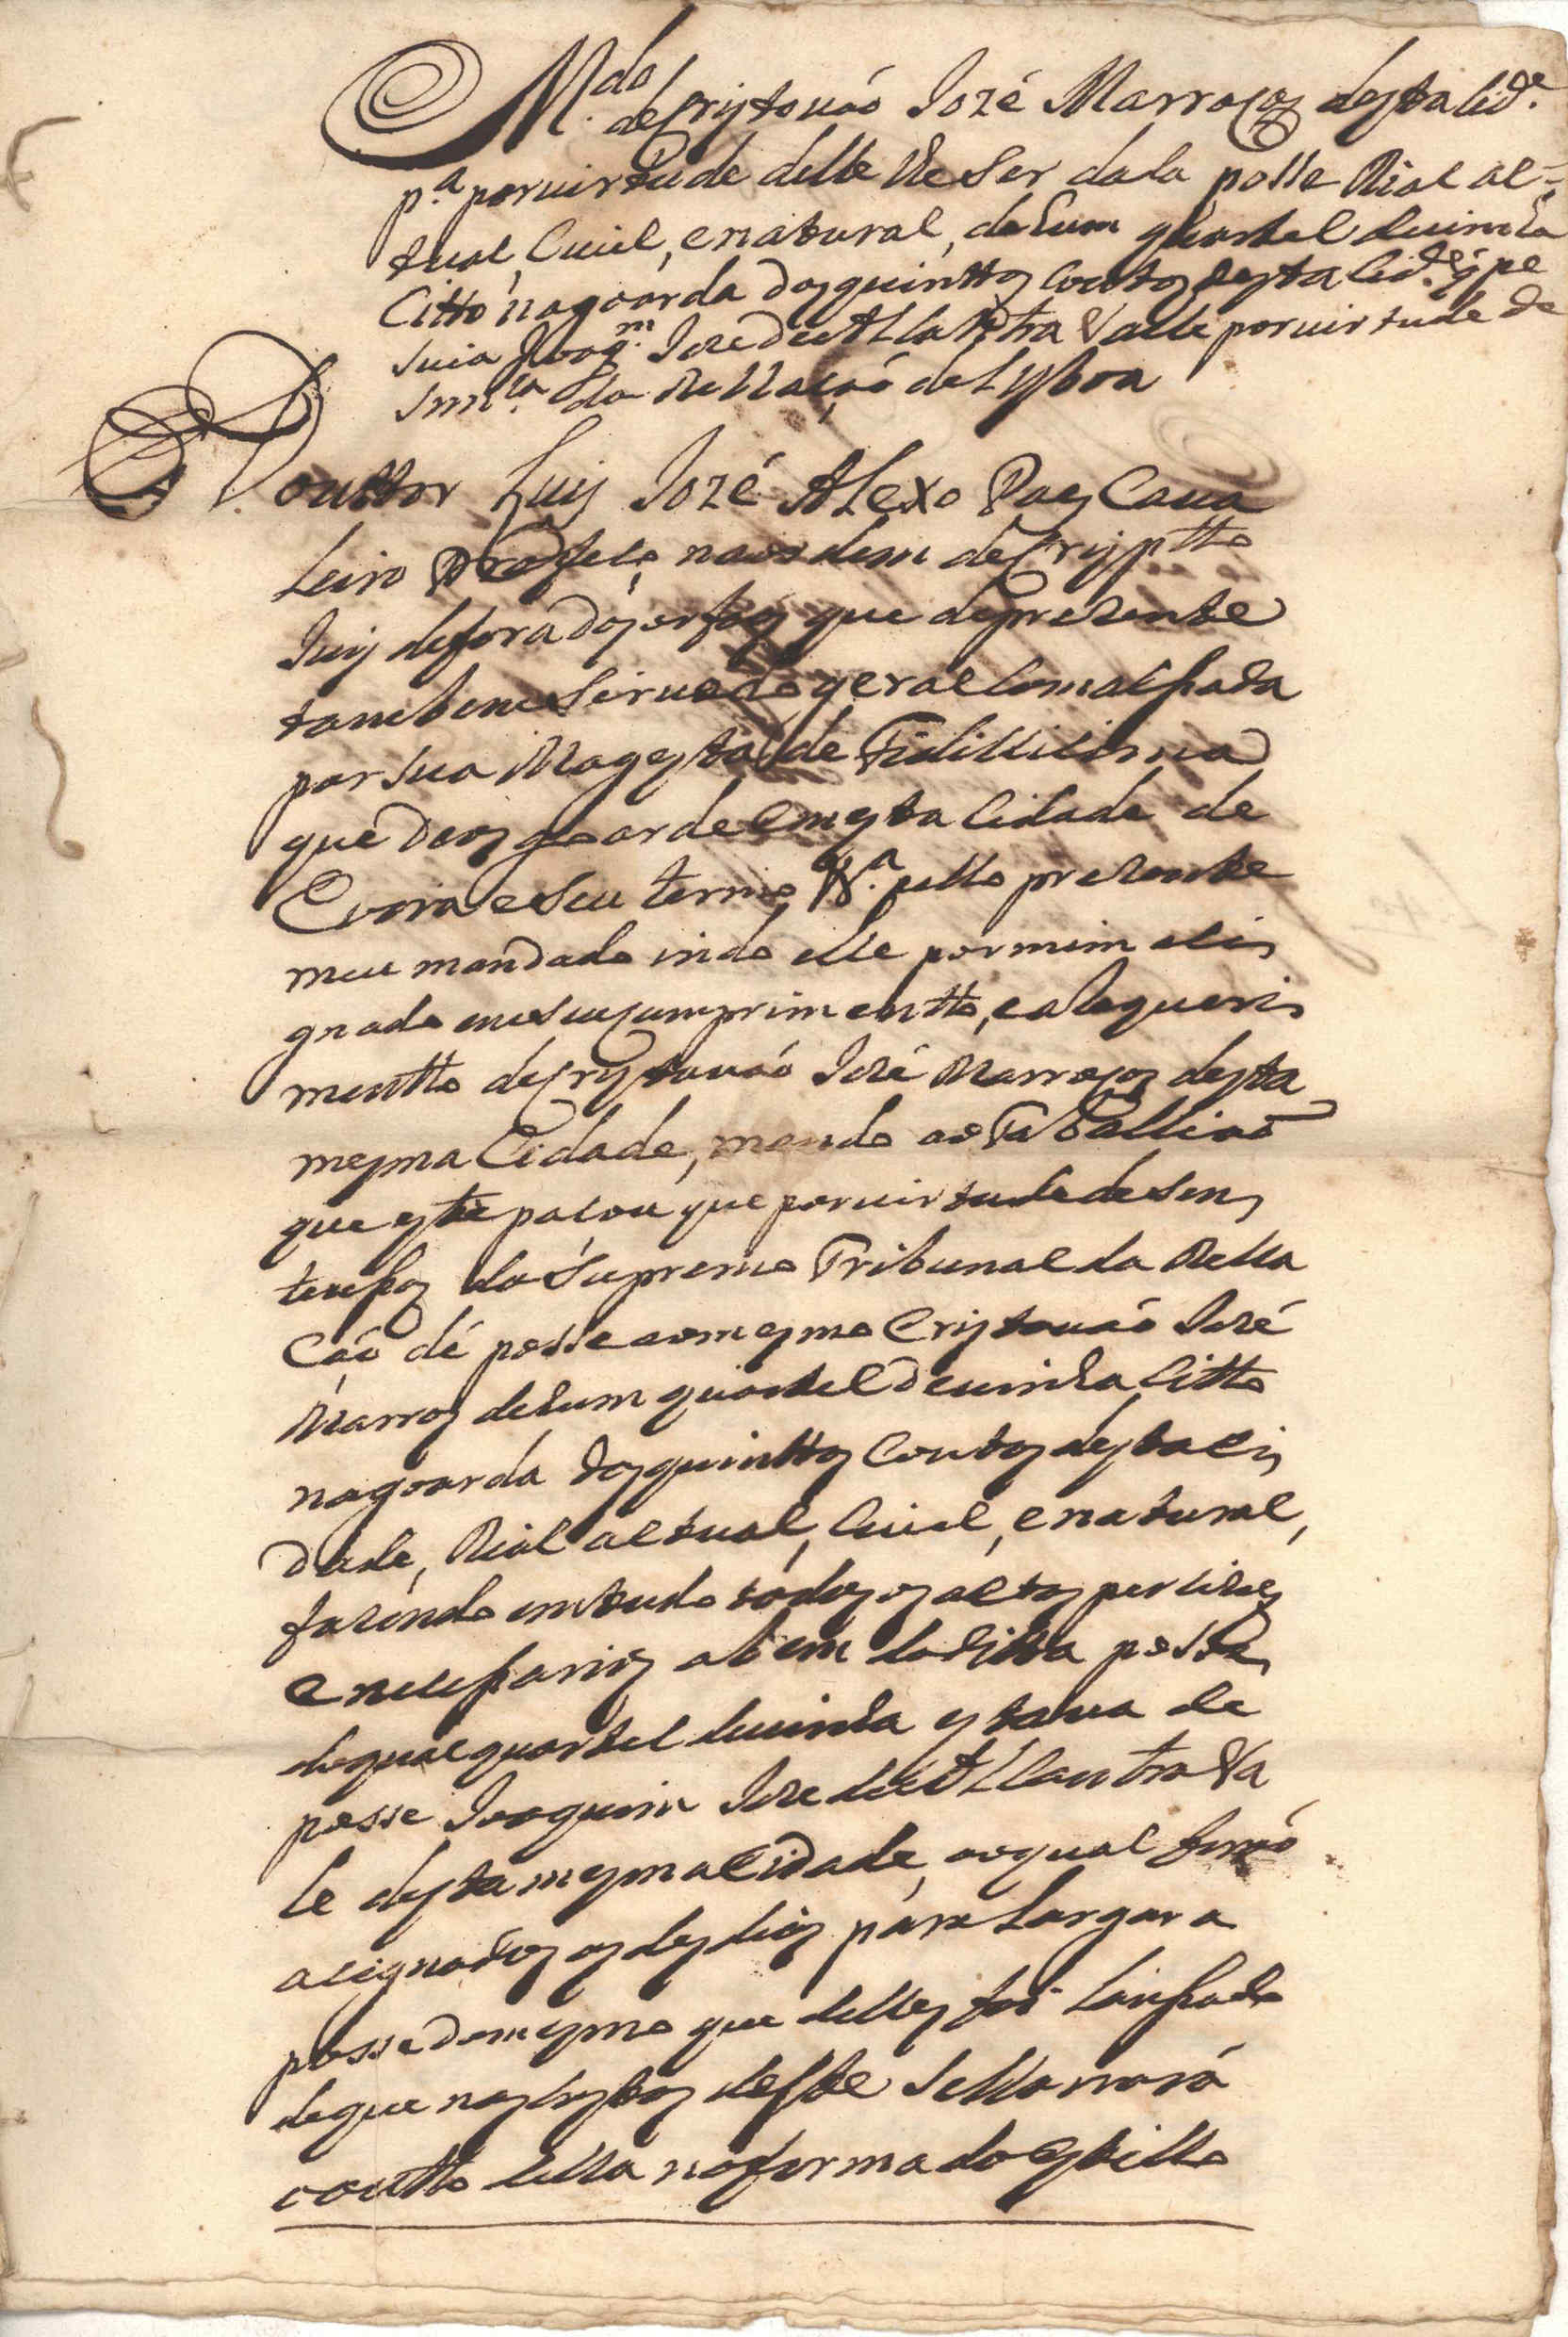 M.do de Cristovaó Jozé Marrocos desta Cid.e
p.a por virtude delle lhe ser dada posse Rial al-
tual, Civil, e natural, de hum quartel de vinha
Citto na goarda dos quinttos Coutos desta Cid.e q pe
suia Joaq.m Joze de Allcantra Valle por virtude de
Snn.ca da Rellaçaó de Lysboa
Douttor Luis Jozé Alexo Paes Cava
leiro Profeço na ordem de Cripstto
Juis de fora dos orfaos que deprezente
tambem serve do geral com alsada
por sua Magestade Fidillicima
que Deos goarde em esta Cidade de
Evora e seu termo &.a pello prezente
meu mandado indo elle por mim aci
gnado em seu cumprimentto, e a Requeri
mentto de Cristovaó Jozé Marrocos desta
mesma Cidade, mando ao Taballiaó
que este paçou que por virtude de sen
tensas do Supremo Tribunal da Rella
Caó dé posse ao mesmo Cristovaó Jozé
Marros de hum quartel de vinha Citto
na goarda dos quinttos Coutos desta Ci
dade, Rial altual, Civil, e natural,
fazendo em tudo todos os altos percizos
e necesarios a bem da ditta posse
do qual quartel de vinha estava de
posse Joaquim Joze de Allcantra Va
le desta mesma Cidade, ao qual foraó
acignados os des dias para Largar a
posse do mesmo que delles foi Lansado
de que nas costas deste se Llavrará
autto della na forma do Estillo